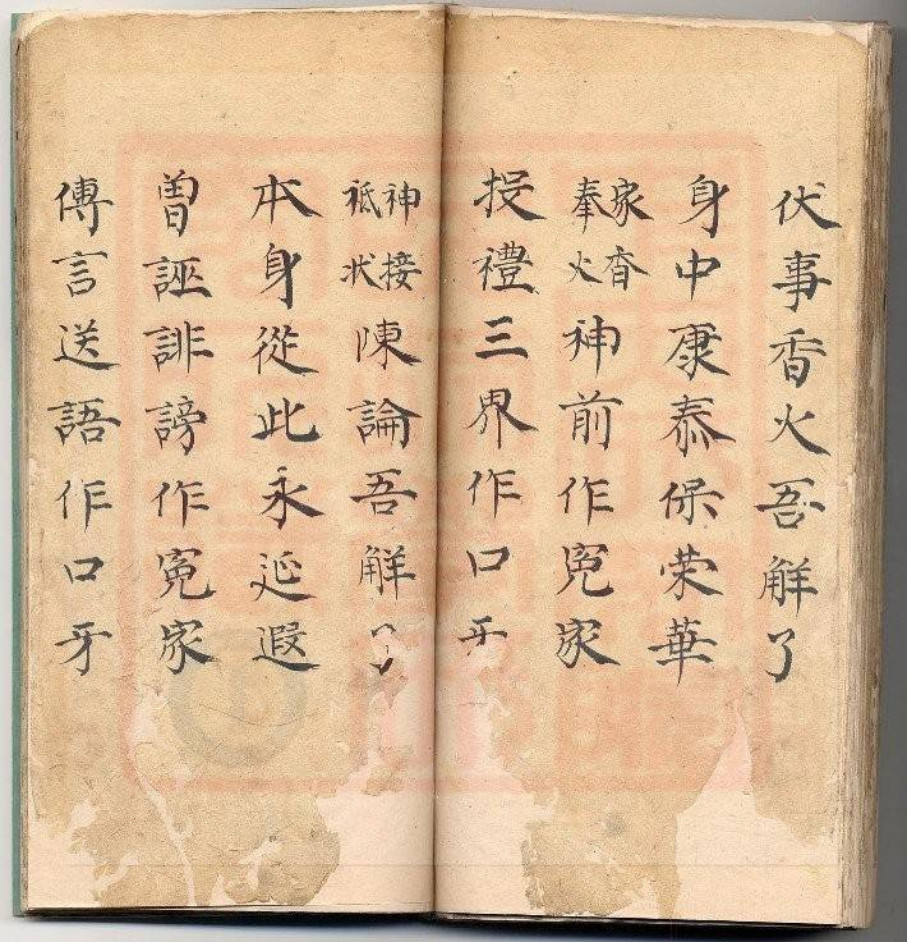 伏事香火吾觧了
身中康泰保荣華
家香奉火神前作寃家
投禮三界作口牙
神接祗状陳論吾觧了
本身從此永延遐
曽誣誹謗作寃家
傳言送語作口牙